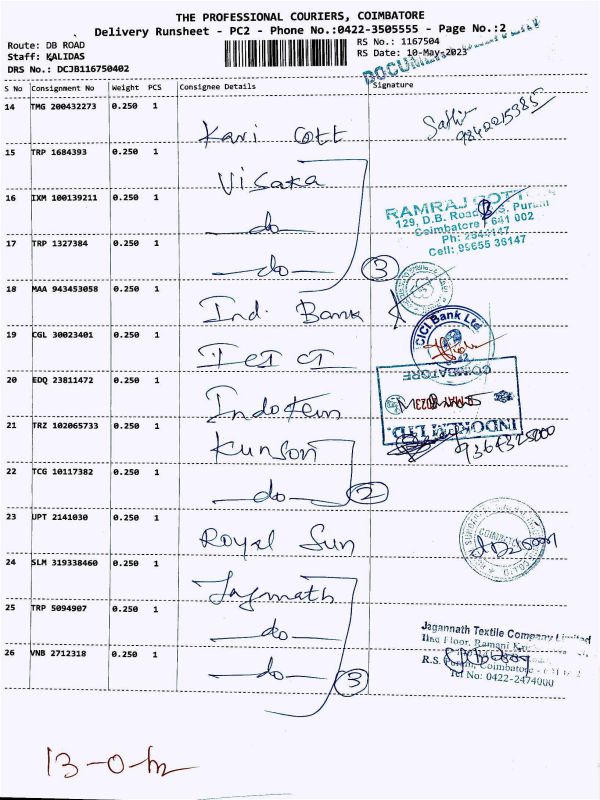 THE PROFESSIONAL COURIERS, COIMBATORE
Delivery Runsheet - PC2 - Phone No.:0422-3505555 - Page No.:2
Route: DB ROAD
Staff: KALIDAS
DRS No.: DCJB116750402
RS No.: 1167504
RS Date: 10-May-2023
S No Consignment No Weight PCS Consignee Details Signature
14 TMG 200432273 0.250 1
Kavi Cott
9842215385
15 TRP 1684393 0.250 1
Visaka
16 IXM 100139211 0.250 1
do
RAMRAJ COTT
129, D.B. Road, R.S. Puram
Coimbatore - 641 002
Ph: 2544147
Cell: 95655 36147
17 TRP 1327384 0.250 1
do
3
18 MAA 943453058 0.250 1
Ind. Bank
19 CGL 30023401 0.250 1
ICICI
ICICI Bank Ltd.
COIMBATORE
20 EDQ 23811472 0.250 1
Indokem
INDOKEM LTD.
21 TRZ 102065733 0.250 1
Kunson
22 TCG 10117382 0.250 1
do
2
23 UPT 2141030 0.250 1
Royal Sun
24 SLM 319338460 0.250 1
25 TRP 5094907 0.250 1
do
Jagannath Textile Company Limited
IInd Floor, Ramani
R.S. Puram, Coimbatore
Tel No: 0422-2474000
26 VNB 2712318 0.250 1
do
3